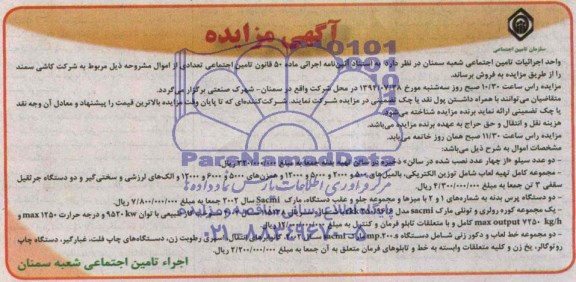 آگهی مزایده
سازمان تامین اجتماعی
واحد اجرائیات تامین اجتماعی شعبه سمنان در نظر دارد به استناد آئین‌نامه اجرائی ماده ۵۰ قانون تامین اجتماعی تعدادی از اموال مشروحه ذیل مربوط به شرکت کاشی سمند
را از طریق مزایده به فروش برساند.
مزایده راس ساعت ۱۰/۳۰ صبح روز سه‌شنبه مورخ در محل شرکت واقع در سمنان - شهرک صنعتی برگزار می‌گردد.
متقاضیان می‌توانند با همراه داشتن پول نقد یا چک تضمینی در مزایده شرکت نمایند. شرکت‌کننده‌ای که تا پایان وقت مزایده بالاترین قیمت را پیشنهاد و معادل آن وجه نقد
یا چک تضمینی ارائه نماید برنده مزایده شناخته می‌شود.
هزینه نقل و انتقال و حق حراج به عهده برنده مزایده می‌باشد.
مزایده راس ساعت ۱۱/۳۰ صبح همان روز خاتمه می‌یابد.
مشخصات اموال به شرح ذیل می‌باشد:
- دو عدد سیلو از چهار عدد نصب شده در سالن جمعا به مبلغ ریال.
- مجموعه کامل تهیه لعاب شامل توزین الکتریکی، بالمیل‌های و ۲۰۰۰ و ۵۰۰۰ و ۱۲۰۰۰ و همزن‌های و ۶۰۰۰ و ۱۲۰۰۰ و الک‌های لرزشی و سختی‌گیر و دو دستگاه جرثقیل
سقفی ۳ تن جمعا به مبلغ ریال.
- دو دستگاه پرس بدنه به شماره‌های ۱ و ۲ با میزها و مجموعه جلو و عقب دستگاه، مارک Sacmi سال ۲۰۰۲ جمعا به مبلغ ۷/۸۰۰/۰۰۰/۰۰۰ ریال.
- یک مجموعه کوره رولری و تونلی مارک sacmi مدل با توان 9520 kw و درجه حرارت max 1250 و
max output 7250 kg/h کامل و با متعلقات تابلو فرمان و کنترل به مبلغ ریال.
- دو مجموعه خط لعاب و دکور زنی شامل دستگاه اسپری رطوبت زن، دستگاه‌های چاپ فلت، غبارگیر، دستگاه چاپ
روتوکالر، یخ زن و کلیه متعلقات وابسته به خط و تابلوهای فرمان متعلق به آن جمعا به مبلغ ۲/۲۰۰/۰۰۰/۰۰۰ ریال.
اجراء تامین اجتماعی شعبه سمنان
ParsNamadData
۰۲۱-۸۸۳۴۹۶۷۰-۵